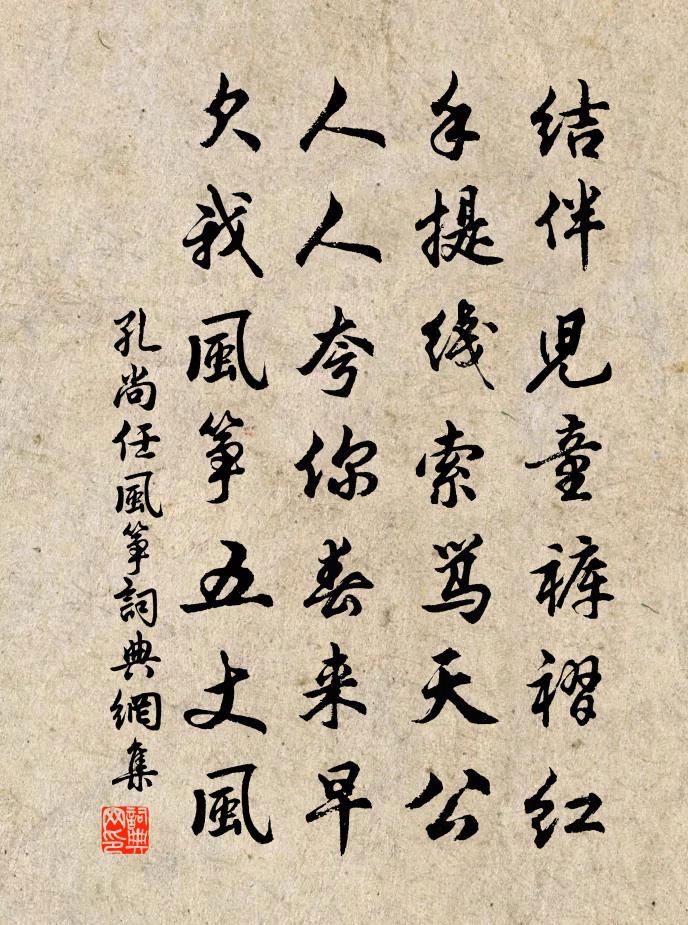 结伴児童裤褶红
手提线索骂天公
人人夸你春来早
欠我風筝五丈風
孔尚任風筝詞典網集
詞典網印